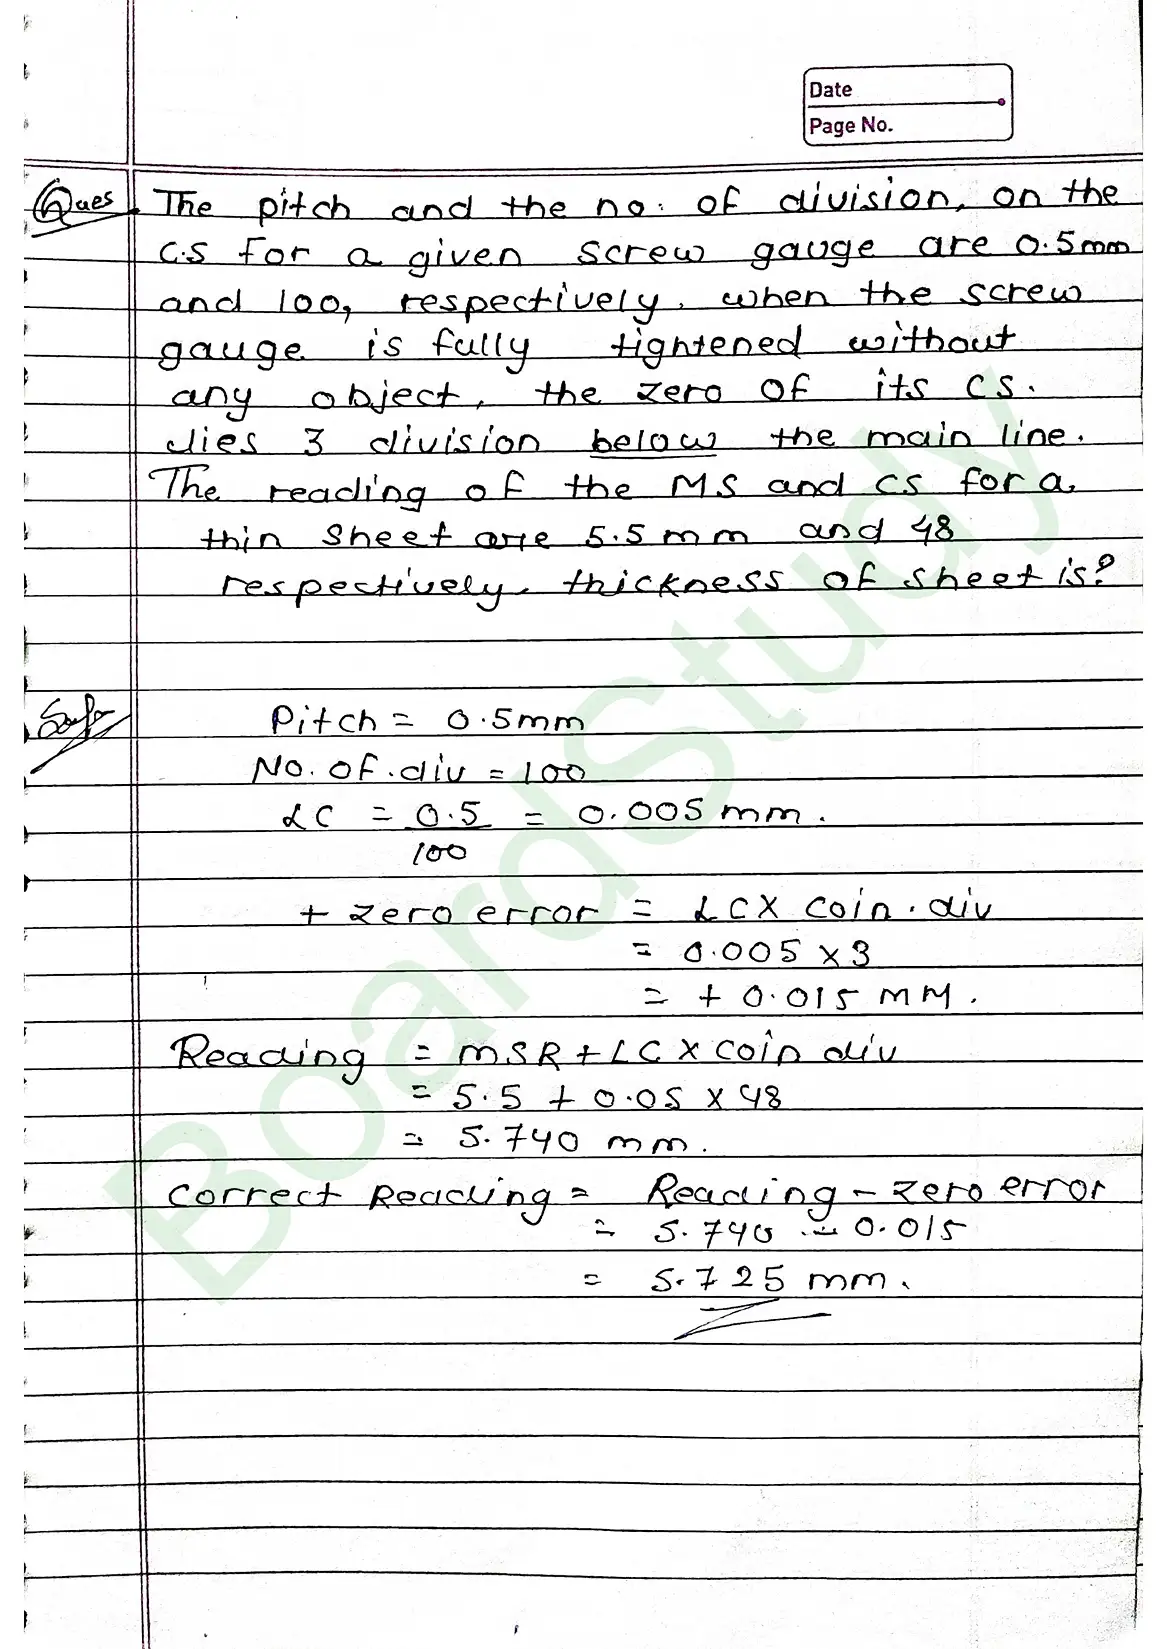 Date
Page No.
Ques. The pitch and the no. of division, on the
C.S for a given screw gauge are 0.5mm
and 100, respectively. when the screw
gauge is fully tightened without
any object, the zero of its CS.
lies 3 division below the main line.
The reading of the MS and CS for a
thin sheet are 5.5 mm and 48
respectively. thickness of sheet is?
Pitch = 0.5mm
No. of. div = 100
LC = 0.5 = 0.005 mm.
100
+ zero error = LC X coin. div
= 0.005 x 3
= + 0.015 MM.
Reading = MSR + LC X coin div
= 5.5 + 0.05 x 48
= 5.740 mm.
correct Reading = Reading - zero error
= 5.740 - 0.015
= 5.725 mm.
BoardStudy